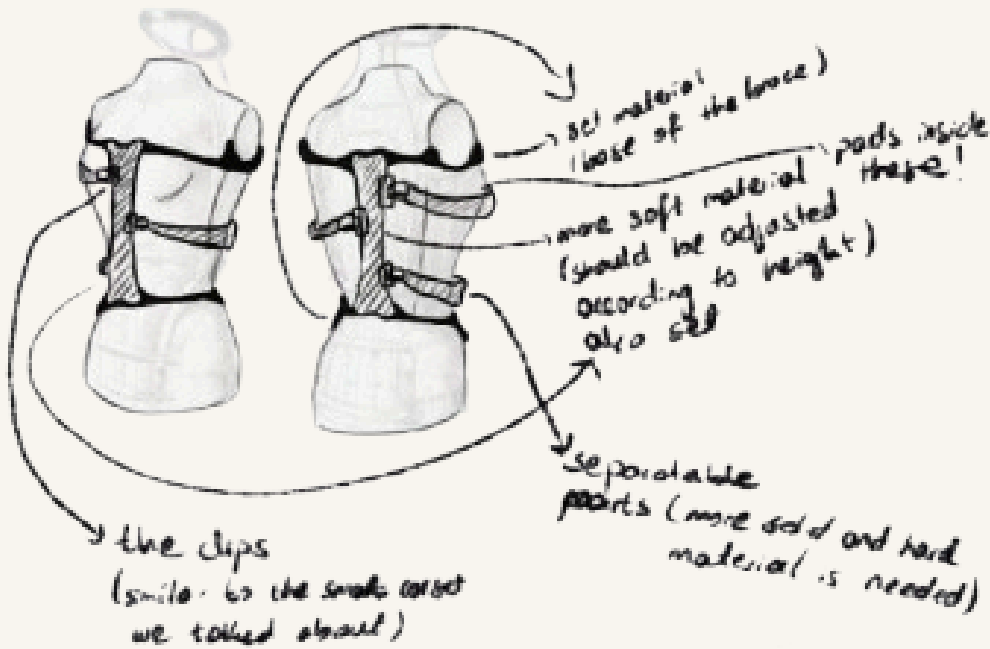 set material
(base of the brace)
pads inside
these!
more soft material
(should be adjusted
according to height)
also set
separatable
parts (more solid and hard
material is needed)
the clips
(similar to the small corset
we talked about)